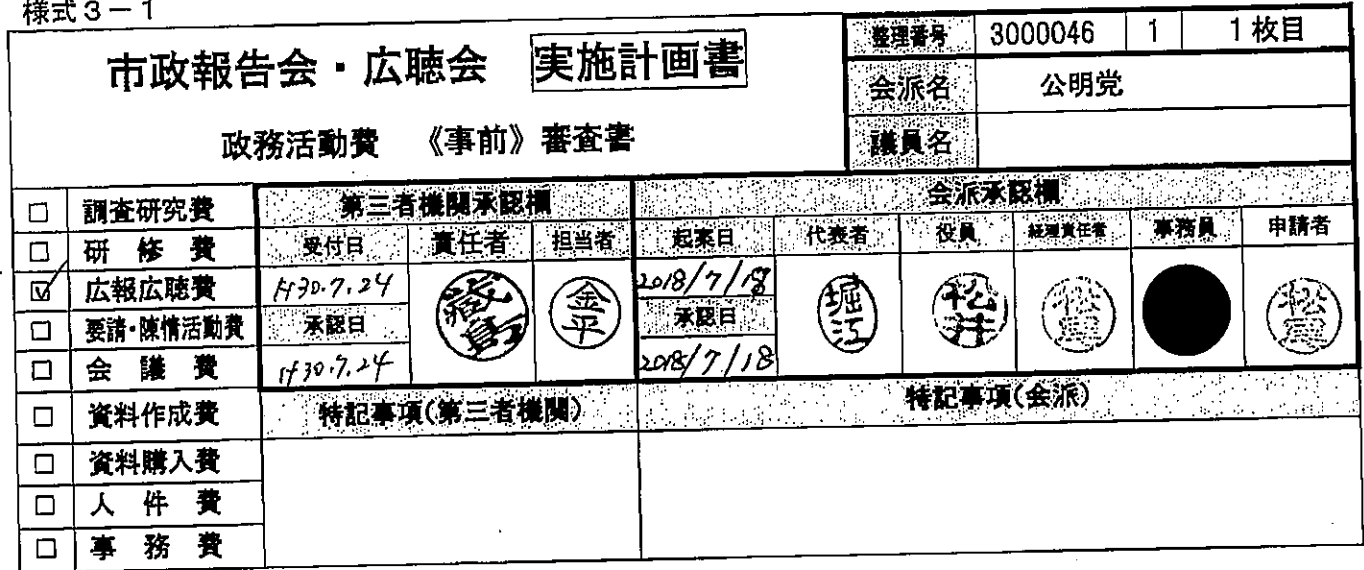 様式3-1
市政報告会・広聴会 実施計画書
政務活動費 《事前》審査書
整理番号 3000046 1 1枚目
会派名 公明党
議員名
□ 調査研究費
□ 研修費
☑ 広報広聴費
□ 要請・陳情活動費
□ 会議費
□ 資料作成費
□ 資料購入費
□ 人件費
□ 事務費
第三者機関承認欄
受付日 責任者 担当者
H30.7.24
承認日
H30.7.24
藏島
金平
会派承認欄
起案日 代表者 役員 経理責任者 事務員 申請者
2018/7/18
承認日
2018/7/18
堀江
松井
特記事項(第三者機関)
特記事項(会派)